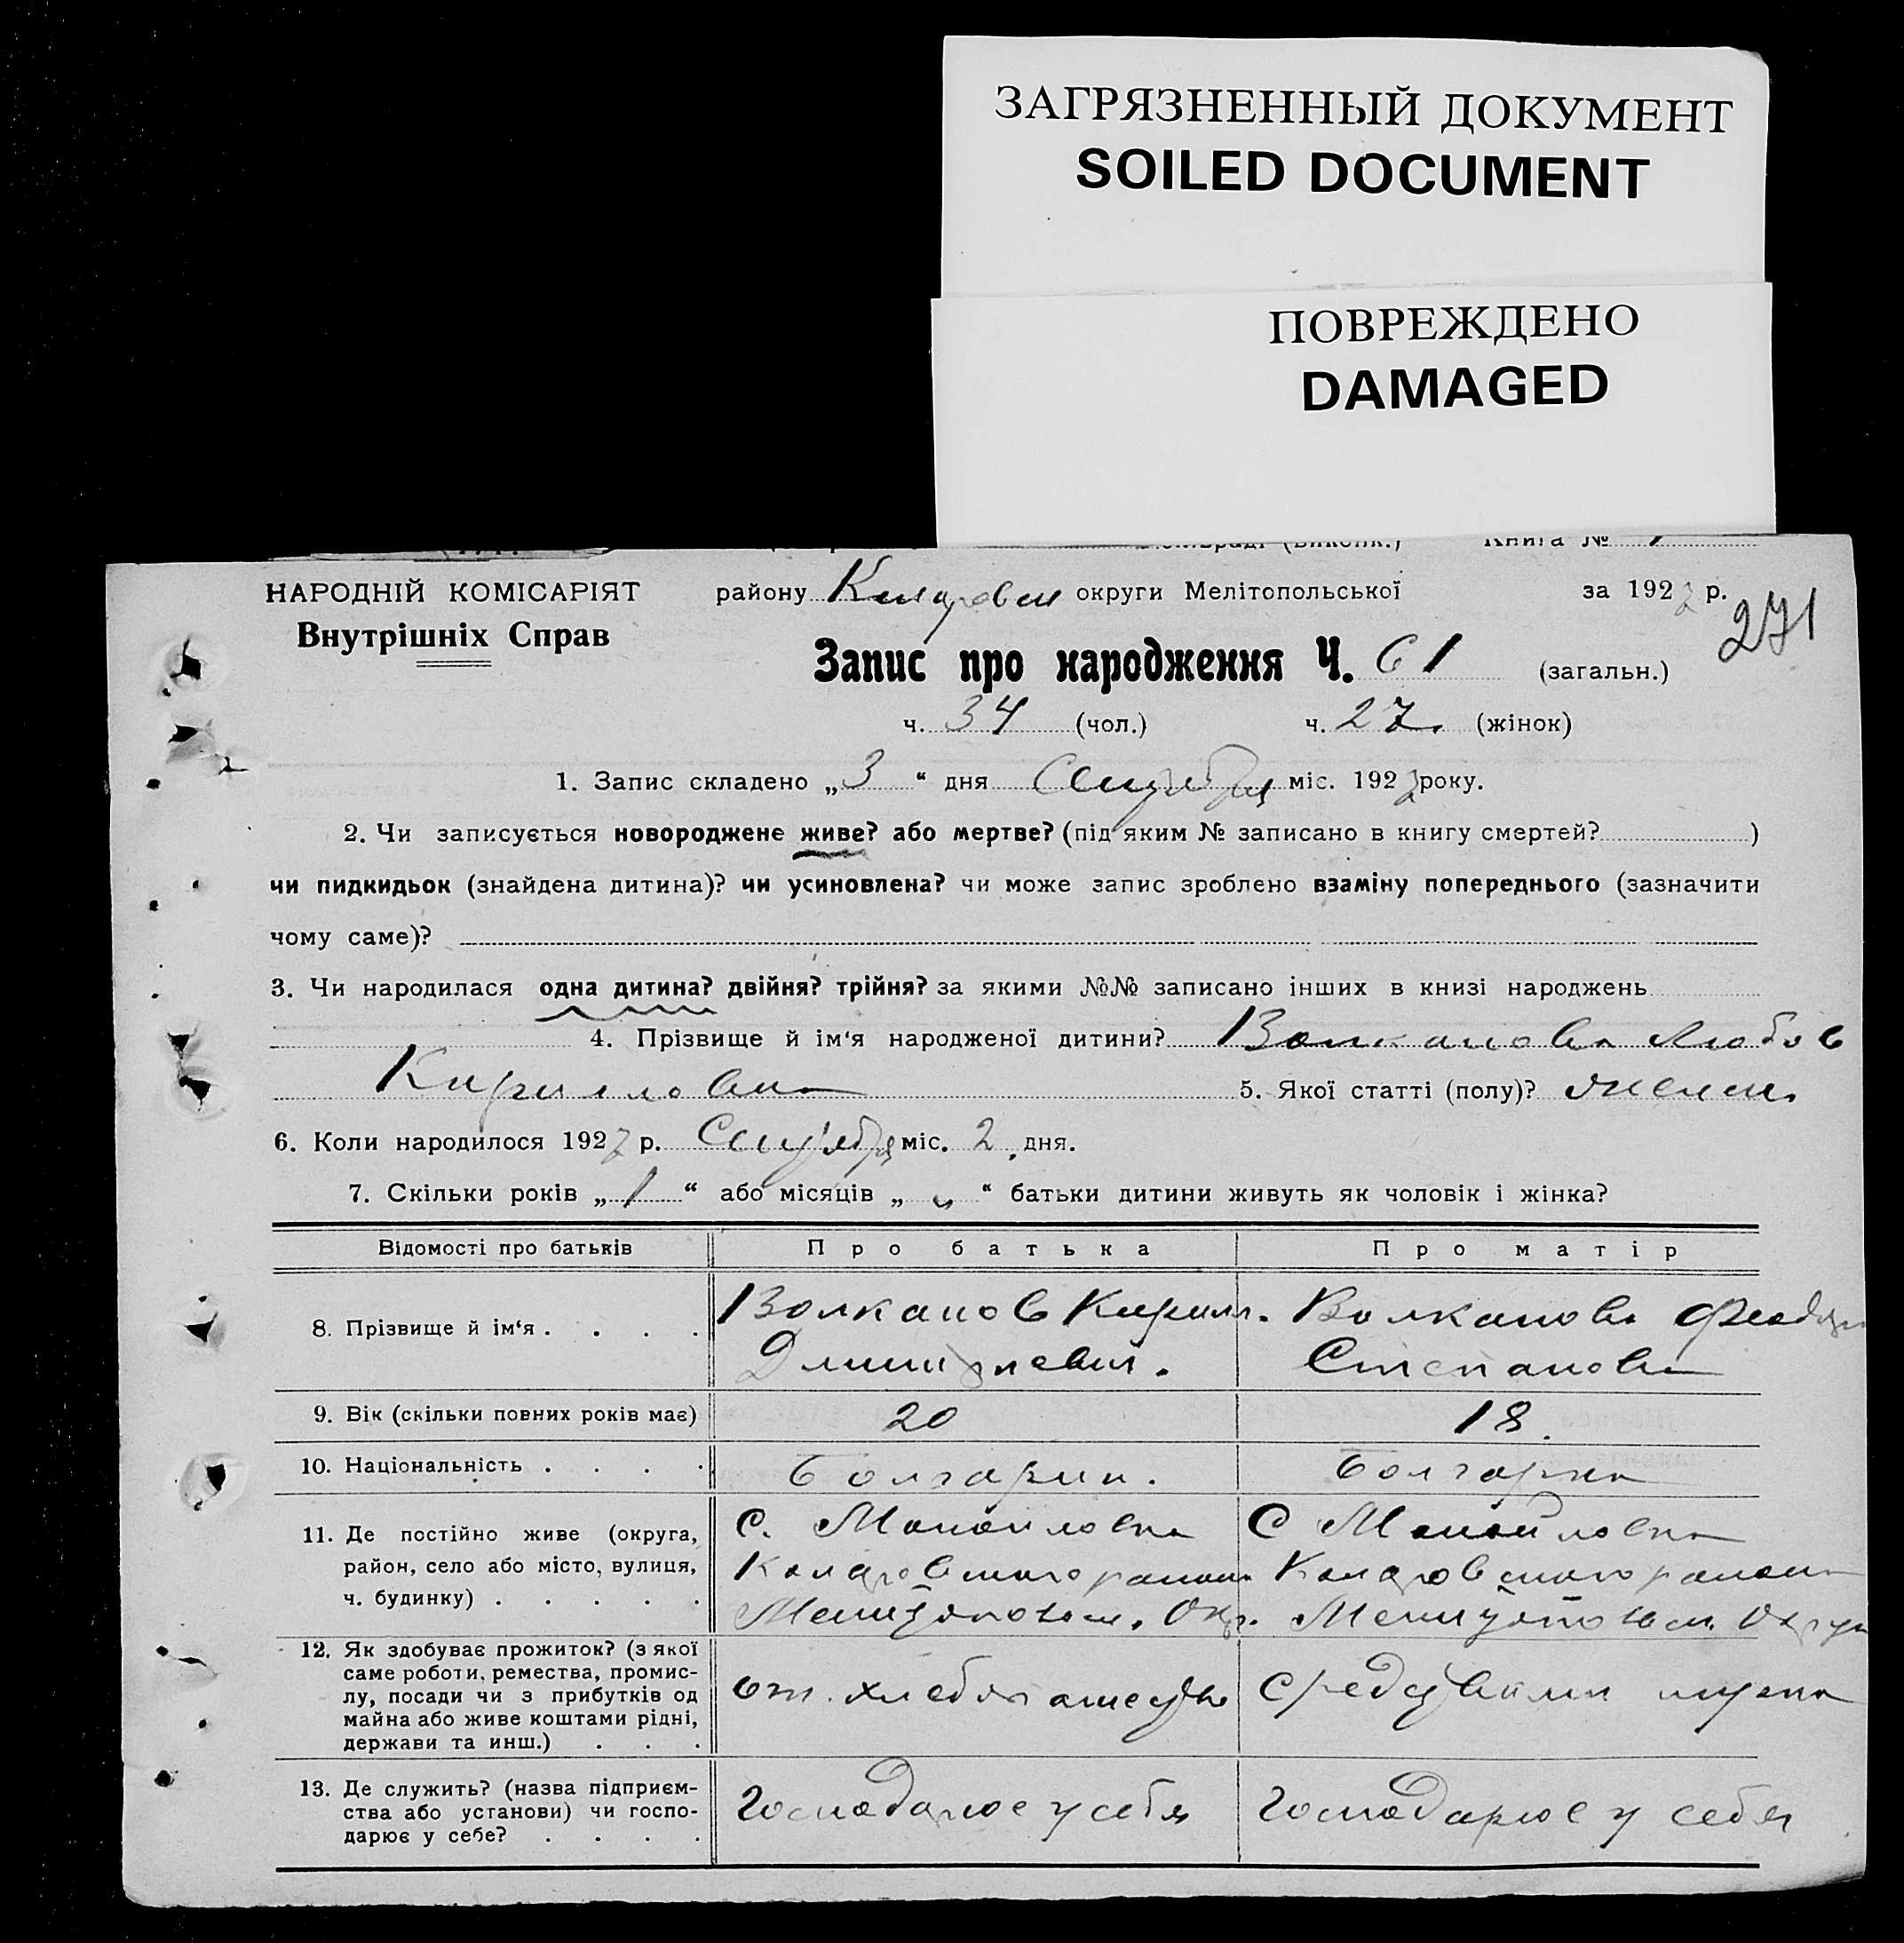 ЗАГРЯЗНЕННЫЙ ДОКУМЕНТ
SOILED DOCUMENT
ПОВРЕЖДЕНО
DAMAGED
Книга №
НАРОДНІЙ КОМІСАРІЯТ
Внутрішніх Справ
району округи Мелітопольської за 1927 р.
271
Запис про народження Ч. 61 (загальн.)
ч. 34 (чол.) ч. 27. (жінок)
1. Запис складено „3“ дня Сентября міс. 1927 року.
2. Чи записується новороджене живе? або мертве? (під яким № записано в книгу смертей? )
чи пидкидьок (знайдена дитина)? чи усиновлена? чи може запис зроблено взаміну попереднього (зазначити
чому саме)?
3. Чи народилася одна дитина? двійня? трійня? за якими №№ записано інших в книзі народжень
4. Прізвище й ім‘я народженої дитини? Волканова Любов
Кирилловна 5. Якої статті (полу)? женск.
6. Коли народилося 1927 р. Сентября міс. 2 дня.
7. Скільки років „1“ або місяців „ „ “ батьки дитини живуть як чоловік і жінка?
Відомості про батьків Про батька Про матір
8. Прізвище й ім‘я . . . . Волканов Кирилл. Волканова
Степанова
9. Вік (скільки повних років має) 20 18.
10. Національність . . . . болгарин. болгарка
11. Де постійно живе (округа,
район, село або місто, вулиця,
ч. будинку) . . . . .
С. Манойловка
района
Мелитопольск. Окр.
С Манойловка
района
Мелитопольск. Округа
12. Як здобуває прожиток? (з якої
саме роботи, ремества, промис-
лу, посади чи з прибутків од
майна або живе коштами рідні,
держави та инш.) . . .
от. хлебопашества
средствами мужа
13. Де служить? (назва підприєм-
ства або установи) чи госпо-
дарює у себе? . . . .
Господарює у себя
Господарює у себя